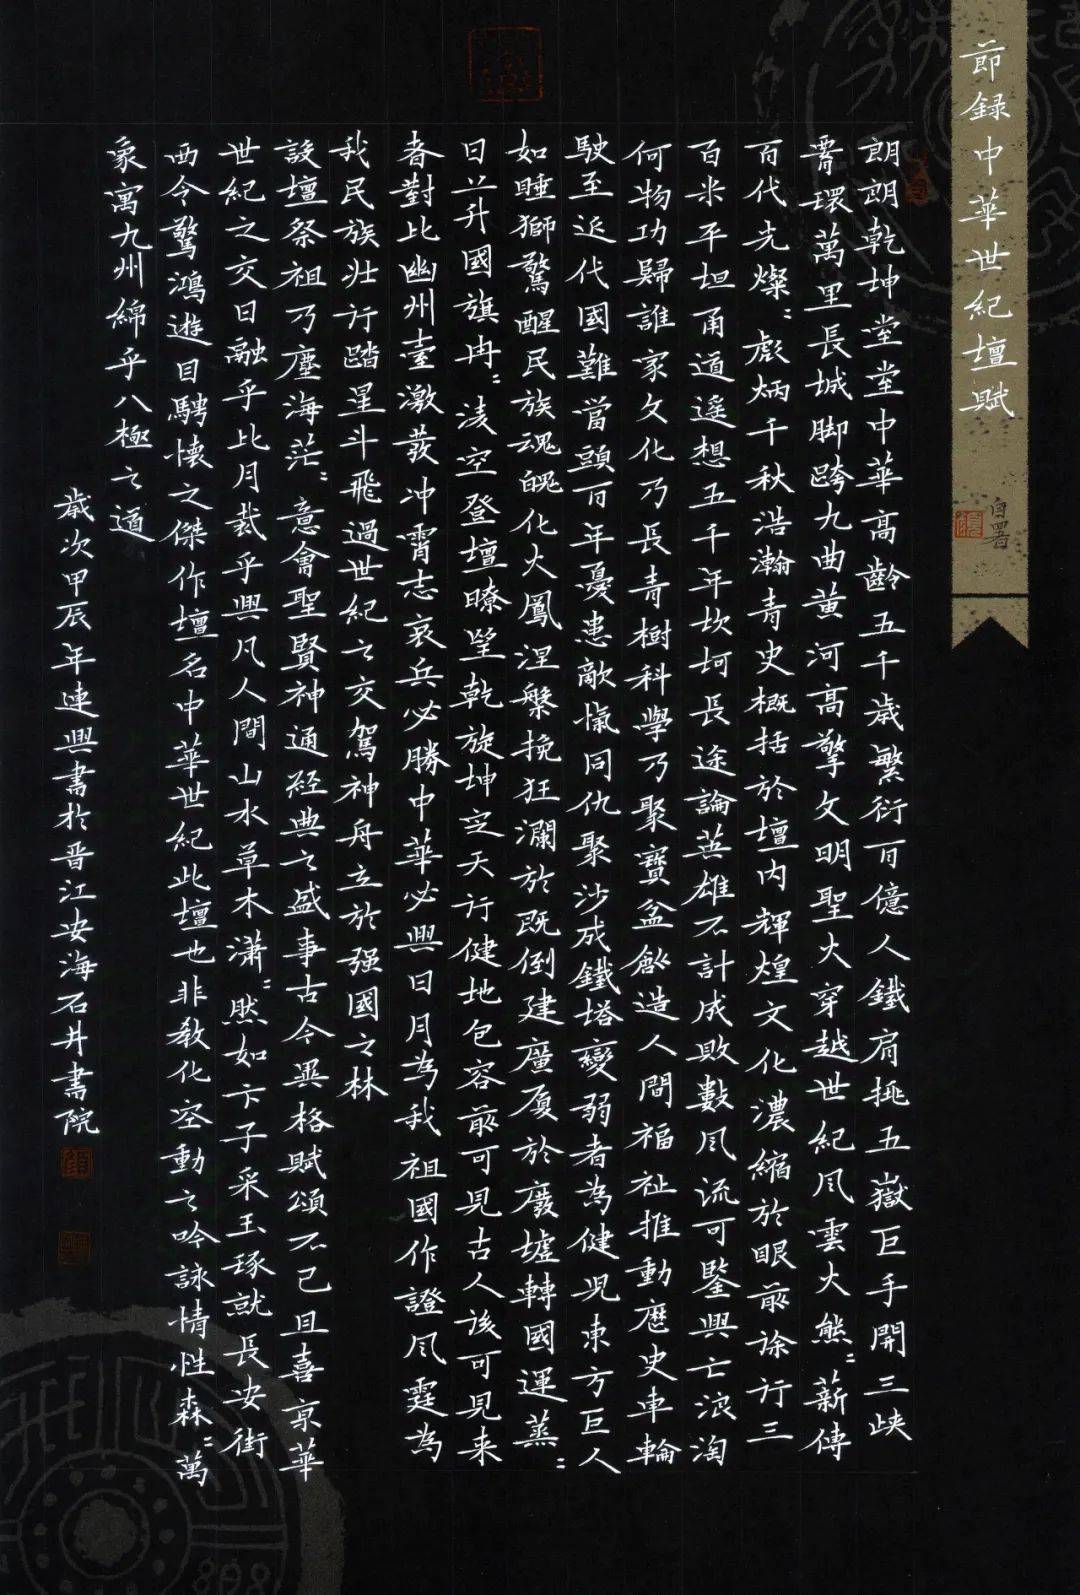 節録中華世紀壇賦
自署
朗朗乾坤堂堂中華高齡五千歲繁衍百億人鐵肩挑五嶽巨手開三峽
霄環萬里長城脚跨九曲黄河高擎文明聖火穿越世紀风雲大熊〻薪傳
百代光燦〻彪炳千秋浩瀚青史概括於壇内輝煌文化濃縮於眼前徐行三
百米平坦甬道遥想五千年坎坷長途論英雄不計成敗數风流可鑒興亡浪淘
何物功歸誰家文化乃長青樹科學乃聚寶盆創造人間福祉推動歷史車輪
駛至近代國難當頭百年憂患敵愾同仇聚沙成鐵塔變弱者為健児東方巨人
如睡獅驚醒民族魂魄化火鳳涅槃挽狂瀾於既倒建廣厦於廢墟轉國運蒸〻
日上升國旗冉〻凌空登壇瞭望乾旋坤定天行健地包容前可見古人後可見来
者對比幽州臺激發冲霄志哀兵必勝中華必興日月為我祖國作證风霆為
我民族壮行踏星斗飛過世紀之交駕神舟立於强國之林
設壇祭祖乃塵海茫〻意會聖賢神通经典之盛事古今異格賦頌不已且喜京華
世紀之交日融乎比月裁乎興凡人間山水草木潇〻然如卞子采玉琢就長安街
西令驚鴻遊目騁懷之傑作壇名中華世紀此壇也非教化空動之吟詠情性森〻萬
象寓九州綿乎八極之道
歲次甲辰年連興書於晋江安海石井書院